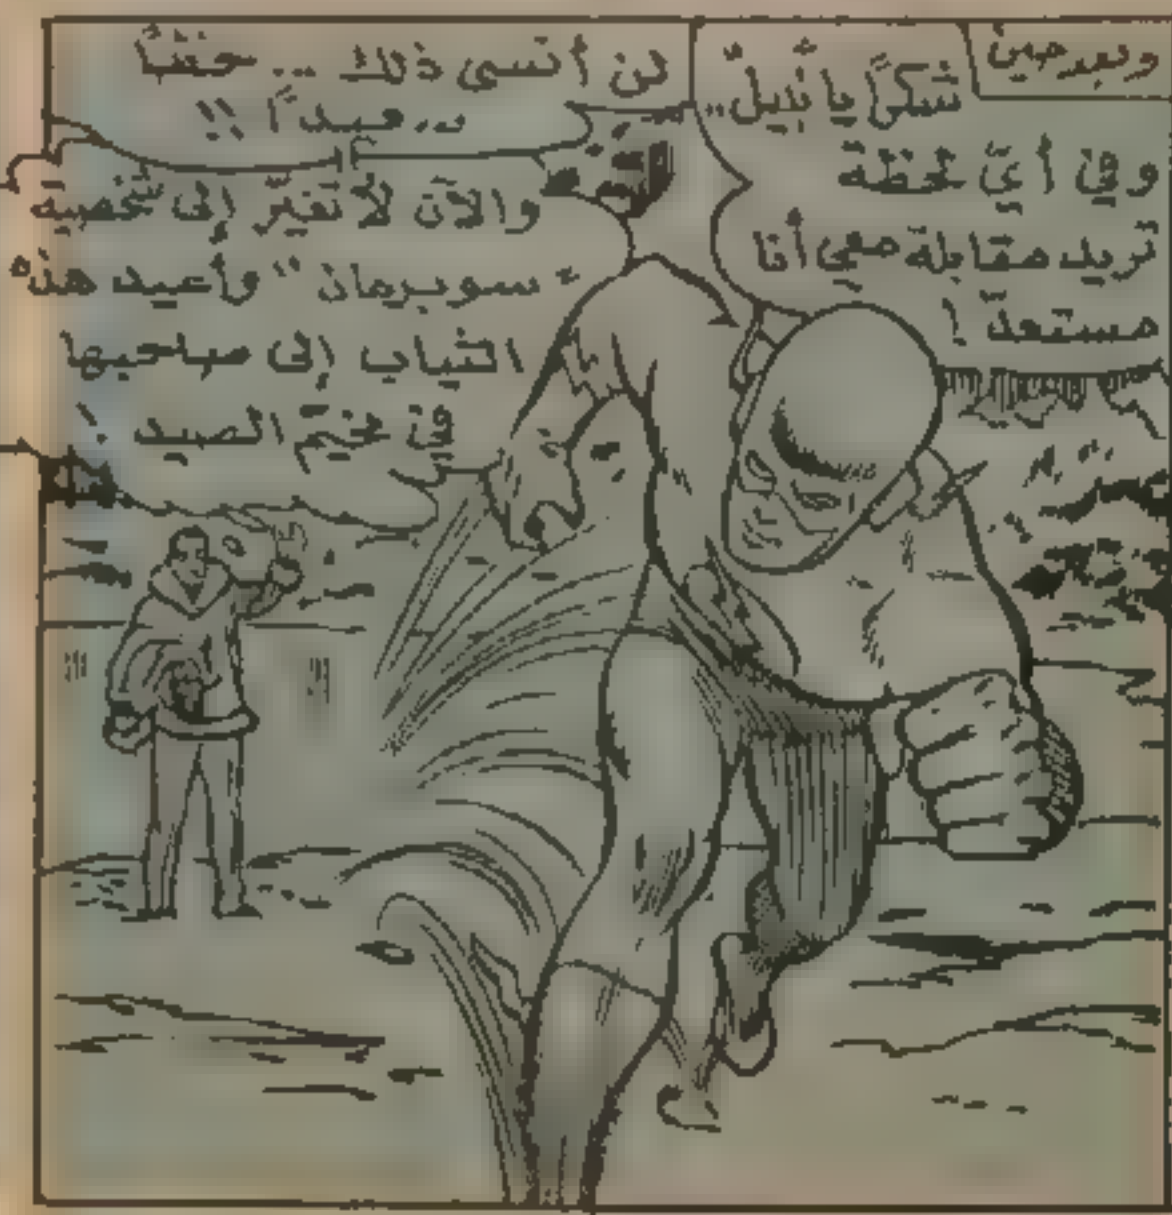 وبعد حين
شكراً يا نبيل،،
وفي أيّ لحظة
تريد مقابلة معي أنا
مستعدّ !
لن أنسى ذلك .. حتماً
.. عيداً !!
والآن لأتغيّر إلى شخصيّة
"سوبرمان" وأعيد هذه
الثياب إلى صاحبها
في مخيّم الصيد !